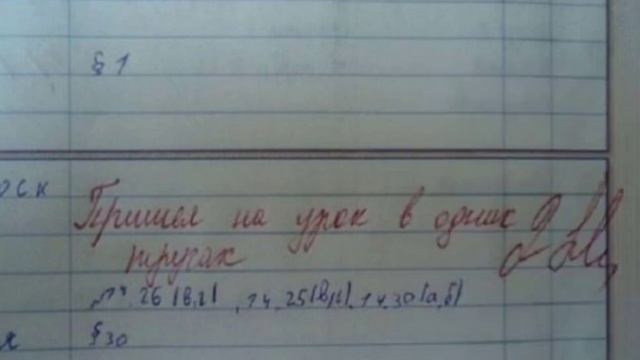 § 1
оск
Пришел на урок в одних
трусах
№ 14.26 (в,г), 14.25 (в,г), 14.30 (а,б)
я
§ 30